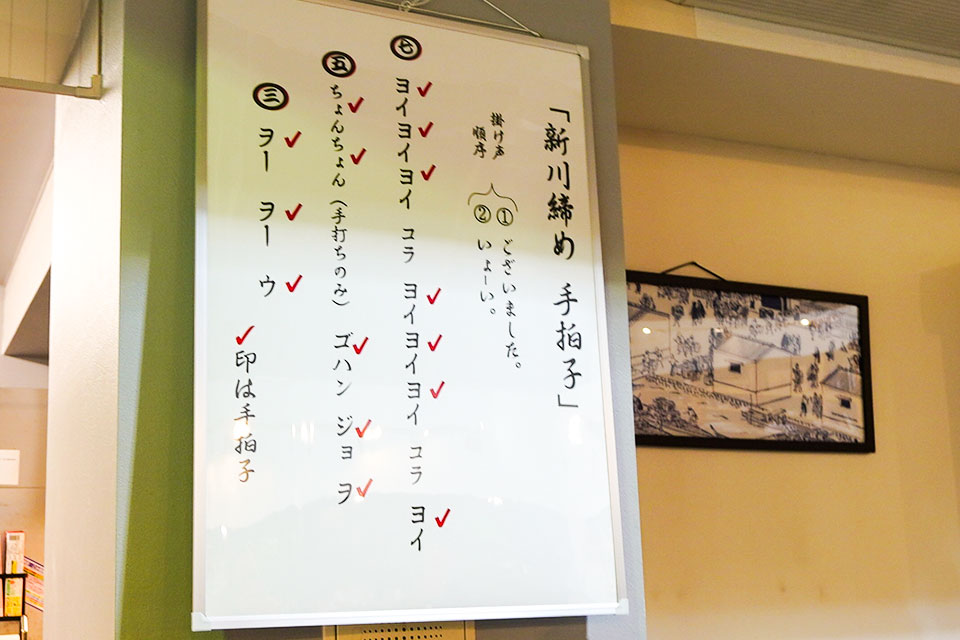 「新川締め 手拍子」
掛け声
順序
① ございました。
② いょーい。
七 ヨイヨイヨイ コラ ヨイヨイヨイ コラ ヨイ
五 ちょんちょん（手打ちのみ） ゴハン ジョ ヲ
三 ヲー ヲー ウ
✓印は手拍子